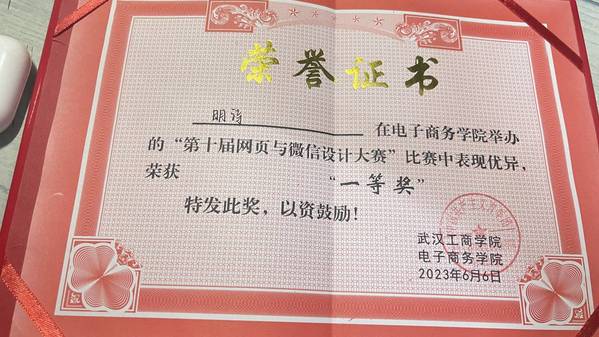 荣誉证书
在电子商务学院举办
的“第十届网页与微信设计大赛”比赛中表现优异，
荣获 “一等奖”
特发此奖，以资鼓励！
武汉工商学院
电子商务学院
2023年6月6日